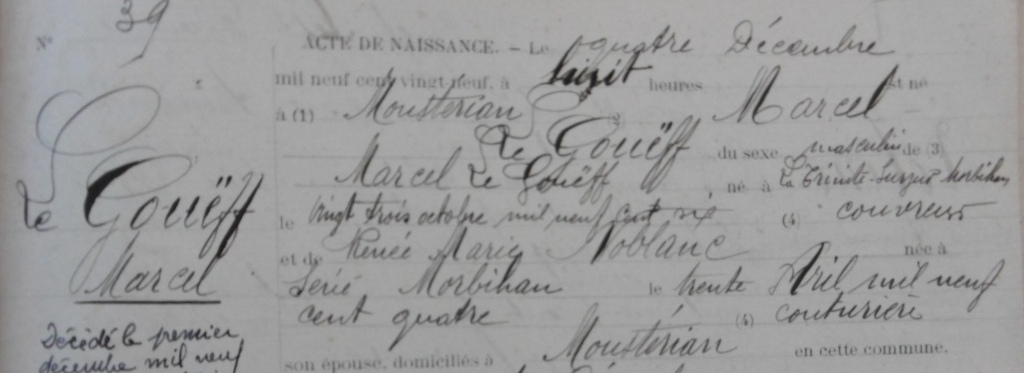 N° 39
ACTE DE NAISSANCE. – Le quatre Décembre
mil neuf cent vingt-neuf, à huit heures est né
à (1) Mousterian Marcel
Le Gouëff du sexe masculin de (3)
Marcel Le Gouëff, né à La Trinité-Surzur Morbihan
le vingt trois octobre mil neuf cent six (4) couvreur
et de Renée Marie Noblanc née à
Séné Morbihan le trente Avril mil neuf
cent quatre (4) couturière
son épouse, domiciliés à Mousterian en cette commune.
Le
Gouëff
Marcel
Décédé le premier
décembre mil neuf